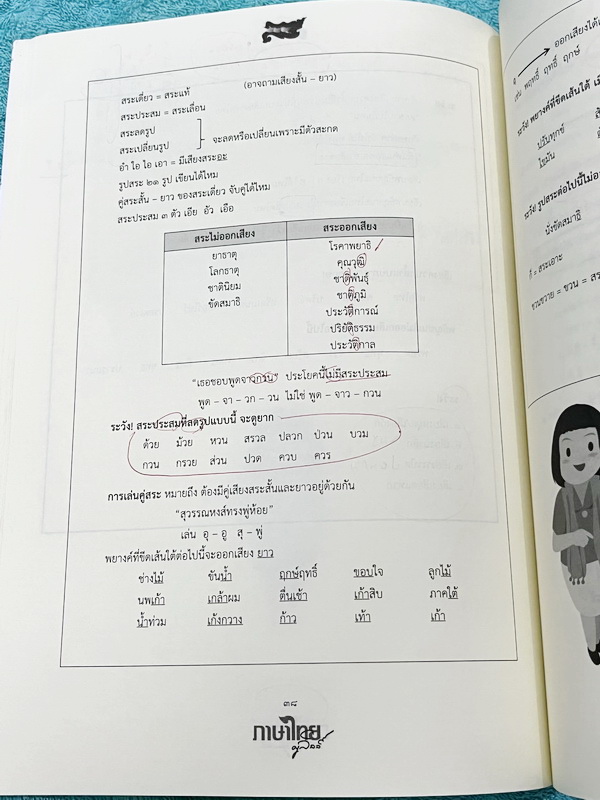 (อาจถามเสียงสั้น – ยาว)
สระเดี่ยว = สระแท้
สระประสม = สระเลื่อน
สระลดรูป
สระเปลี่ยนรูป
จะลดหรือเปลี่ยนเพราะมีตัวสะกด
อำ ไอ ใอ เอา = มีเสียงสระอะ
รูปสระ ๒๑ รูป เขียนได้ไหม
คู่สระสั้น – ยาว ของสระเดี่ยว จับคู่ได้ไหม
สระประสม ๓ ตัว เอีย อัว เอือ
สระไม่ออกเสียง สระออกเสียง
ยาธาตุ โรคาพยาธิ
โลกธาตุ คุณวุฒิ
ชาตินิยม ชาติพันธุ์
ขัดสมาธิ ชาติภูมิ
ประวัติการณ์
ปริยัติธรรม
ประวัติกาล
"เธอชอบพูดจาวกวน" ประโยคนี้ไม่มีสระประสม
พูด – จา – วก – วน ไม่ใช่ พูด – จาว – กวน
ระวัง! สระประสมที่ลดรูปแบบนี้ จะดูยาก
ด้วย ม้วย หวน สรวล ปลวก ป่วน บวม
กวน กรวย ส่วน ปวด ควบ ควร
การเล่นคู่สระ หมายถึง ต้องมีคู่เสียงสระสั้นและยาวอยู่ด้วยกัน
"สุวรรณหงส์ทรงพู่ห้อย"
เล่น อุ – อู สุ – พู่
พยางค์ที่ขีดเส้นใต้ต่อไปนี้จะออกเสียง ยาว
ช่างไม้ ขันน้ำ ฤกษ์ฤทธิ์ ขอบใจ ลูกไม้
นพเก้า เกล้าผม ตื่นเช้า เก้าสิบ ภาคใต้
น้ำท่วม เก้งกวาง ก้าว เท้า เก้า
๓๘
ภาษาไทย
ออกเสียงได้
เช่น พฤทธิ์ ฤทธิ์ ฤกษ์
ระวัง! พยางค์ที่ขีดเส้นใต้
ปรัมทุกข์
ไขมัน
ระวัง! รูปสระต่อไปนี้ไม่ออ
นั่งขัดสมาธิ
ก็ = สระเอาะ
ขวนขวาย = ขวน = สร